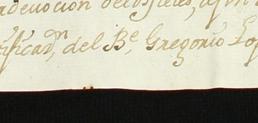 devocion de los fieles, a fin
ificac.n del B.e Gregorio Lop